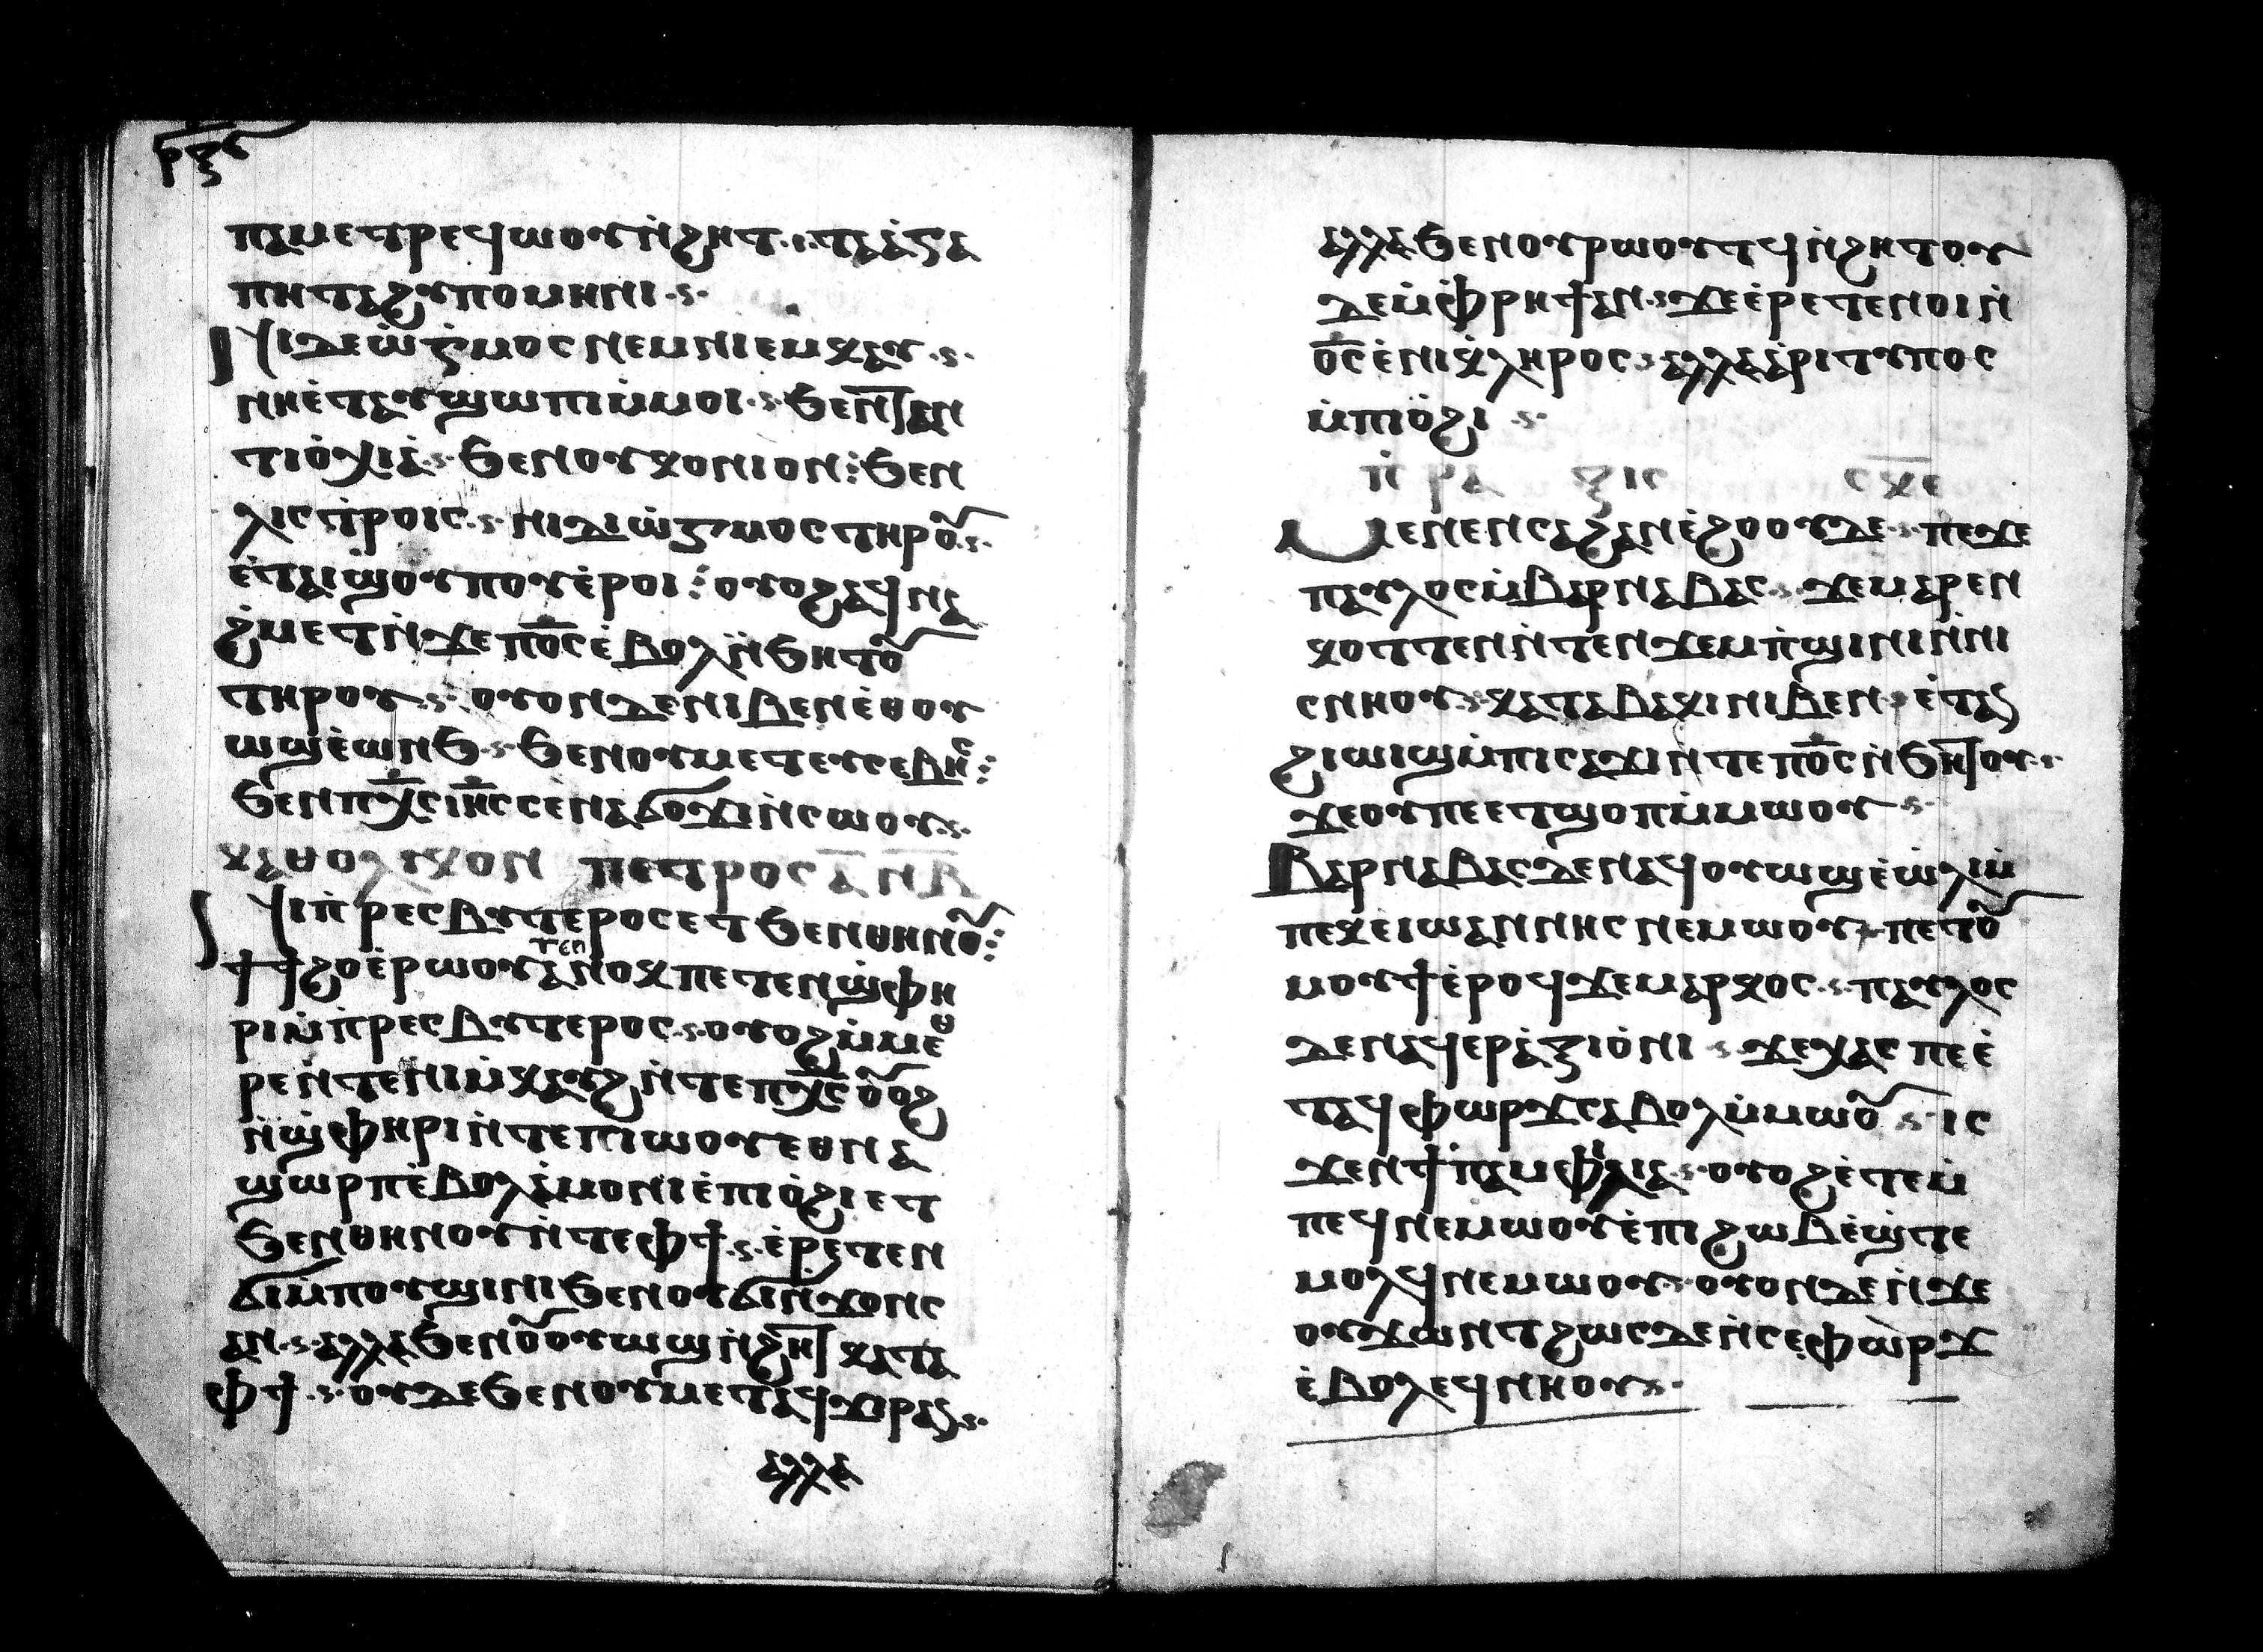 ⲣⲝⲋ
ⲡⲁⲙⲉⲧⲣⲉϥⲱⲟⲩⲛ̀ϩⲏⲧ·ⲓ·ⲧⲁⲁ̀ⲅⲁ
ⲡⲏⲧⲁϩⲩⲡⲟⲙⲏⲛⲓ·ⲥ·
ⲛⲓⲇⲉⲱ̀ⲅⲙⲟⲥⲛⲉⲙⲛⲓⲉⲙⲕⲁⲩ·ⲥ·
ⲛⲏⲉ̀ⲧⲁⲩϣⲱⲡⲓⲙ̀ⲙⲟⲓ·ⲥ·ϧⲉⲛϯⲁⲛ
ⲧⲓⲟ̀ⲭⲓⲁ̀·ⲥ·ϧⲉⲛⲟⲩⲕⲟⲛⲓⲟⲛ⁝ϧⲉⲛ
ⲗⲓⲥⲧ̀ⲣⲟⲓⲥ·ⲥ·ⲛⲓⲇⲓⲱ̀ⲅⲙⲟⲥⲧⲏⲣⲟⲩ·ⲥ·
ⲉ̀ⲧⲁⲓϣⲟⲩⲡⲟⲩⲉ̀ⲣⲟⲓ⁝ⲟⲩⲟϩⲁϥⲛⲁ
ϩⲙⲉⲧⲛ̀ϫⲉⲡⲟ̅ⲥ̅ⲉ̀ⲃⲟⲗⲛ̀ϧⲏⲧⲟⲩ
ⲧⲏⲣⲟⲩ·ⲥ·ⲟⲩⲟⲛⲇⲉⲛⲓⲃⲉⲛⲉ̀ⲑⲟⲩ
ⲱϣⲉ̀ⲱⲛϧ·ⲥ·ϧⲉⲛⲟⲩⲙⲉⲧⲉⲩⲥⲉⲃⲏⲥ⁝
ϧⲉⲛⲡⲭ̅ⲥ̅ⲓⲏ̅ⲥ̅ⲥⲉⲛⲁϭⲟϫⲓⲛ̀ⲥⲱⲟⲩ·ⲥ·
ⲕⲁⲑⲟⲗⲩⲕⲟⲛ ⲡⲉⲧⲣⲟⲥⲁ̅ ⲛⲃ̅
ⲛⲓⲡ̀ⲣⲉⲥⲃⲩⲧⲉⲣⲟⲥⲉⲧϧⲉⲛⲑⲏⲛⲟⲩ⁝
ϯϯϩⲟⲉ̀ⲣⲱⲟⲩⲧⲉⲛⲁⲛⲟⲕⲡⲉⲧⲉⲛϣ̀ⲫⲏ
ⲣⲓⲙ̀ⲡ̀ⲣⲉⲥⲃⲩⲧⲉⲣⲟⲥ·ⲥ·ⲟⲩⲟϩⲙ̀ⲙⲉⲑ
ⲣⲉⲛ̀ⲧⲉⲛⲓⲙ̀ⲕⲁⲩϩⲛ̀ⲧⲉⲡⲭ̅ⲥ̅ⲟⲩⲟϩ
ⲛ̀ϣ̀ⲫⲏⲣⲓⲛ̀ⲧⲉⲡⲓⲱⲟⲩⲉⲑⲛⲁ
ϣⲱⲣⲡⲉ̀ⲃⲟⲗⲁ̀ⲙⲟⲛⲓⲉ̀ⲡⲓⲟ̀ϩⲓⲉⲧ
ϧⲉⲛⲑⲏⲛⲟⲩⲛ̀ⲧⲉⲫϯ·ⲥ·ⲉ̀ⲣⲉⲧⲉⲛ
ϭⲓⲙ̀ⲡⲟⲩϣⲓⲛⲓϧⲉⲛⲟⲩϭⲓⲛϫⲟⲛⲥ
ⲁⲛ·ⲥ·ⲁⲗⲗⲁϧⲉⲛⲟⲩⲟⲩⲱϣⲛ̀ϩⲏⲧⲕⲁⲧⲁ
ⲫϯ·ⲥ·ⲟⲩⲇⲉϧⲉⲛⲟⲩⲙⲉⲧⲁϥϫⲣⲁⲥ·ⲥ·
ⲁⲗⲗⲁ
ⲁⲗⲗⲁϧⲉⲛⲟⲩⲣⲱⲟⲩⲧϥⲛ̀ϩⲏⲧⲟⲩ
ⲇⲉⲙ̀ⲫⲣⲏϯⲁⲛ·ⲥ·ϫⲉⲉ̀ⲣⲉⲧⲉⲛⲟⲓⲛ̀
ⲟ̅ⲥ̅ⲉ̀ⲛⲓⲕ̀ⲗⲏⲣⲟⲥ·ⲥ·ⲁⲗⲗⲁⲁ̀ⲣⲓⲧⲩⲡⲟⲥ
ⲙ̀ⲡⲓⲟ̀ϩⲓ ·ⲥ·
ⲡ̀ⲣⲁ ⲝⲓⲥ ⲥⲕ̅ⲉ̅
ⲙⲉⲛⲉⲛⲥⲁϩⲁⲛⲉ̀ϩⲟⲟⲩⲇⲉ·ⲥ·ⲡⲉϫⲉ
ⲡⲁⲩⲗⲟⲥⲙ̀ⲃⲁⲣⲛⲁⲃⲁⲥ·ⲥ·ϫⲉⲙⲁⲣⲉⲛ
ⲕⲟⲧⲧⲉⲛⲛ̀ⲧⲉⲛϫⲉⲙⲡ̀ϣⲓⲛⲓⲛ̀ⲛⲓ
ⲥⲛⲏⲟⲩ·ⲥ·ⲕⲁⲧⲁⲃⲁⲕⲓⲛⲓⲃⲉⲛ·ⲥ·ⲉ̀ⲧⲁⲥ
ϩⲓⲱⲓϣⲙ̀ⲡⲓⲥⲁϫⲓⲛ̀ⲧⲉⲡⲟ̅ⲥ̅ⲛ̀ϧⲏⲧⲟⲩ·ⲥ·
ϫⲉⲟⲩⲡⲉⲉⲧϣⲟⲡⲙ̀ⲙⲱⲟⲩ ·ⲥ·
ⲃⲁⲣⲛⲁⲃⲁⲥⲇⲉⲛⲁϥⲟⲩⲱϣⲉ̀ⲱ̀ⲗⲓⲙ̀
ⲡⲉⲕⲉⲓⲱⲁⲛⲛⲏⲥⲛⲉⲙⲱⲟⲩ·ⲥ·ⲡⲉⲧⲟⲩ
ⲙⲟⲩϯⲉ̀ⲣⲟϥϫⲉⲙⲁⲣⲕⲟⲥ·ⲥ·ⲡⲁⲩⲗⲟⲥ
ⲇⲉⲛⲁϥⲉⲣⲁ̀ⲝⲓⲟ̀ⲛⲓ ·ⲥ·ϫⲉⲭⲁⲥ ⲡⲉⲉ̀
ⲧⲁϥⲫⲱⲣϫⲥⲁⲃⲟⲗⲙ̀ⲙⲱⲟⲩ ·ⲥ·ⲓⲥ
ϫⲉⲛϯⲡ̀ⲁⲙⲫⲩⲗⲓⲁ·ⲥ·ⲟⲩⲟϩⲉ̀ⲧⲉⲙ̀
ⲡⲉϥⲛⲉⲙⲱⲟⲩⲉ̀ⲡⲓϩⲱⲃⲉ̀ϣ̀ⲧⲉ
ⲙⲟⲗϥⲛⲉⲙⲱⲟⲩ·ⲥ·ⲟⲩⲟⲛⲇⲉⲛ̀ϫⲉ
ⲟⲩϫⲱⲛⲧϩⲱⲥⲇⲉⲛ̀ⲥⲉⲫⲱⲣϫ
ⲉ̀ⲃⲟⲗⲉϥⲛⲏⲟⲩ·ⲥ·